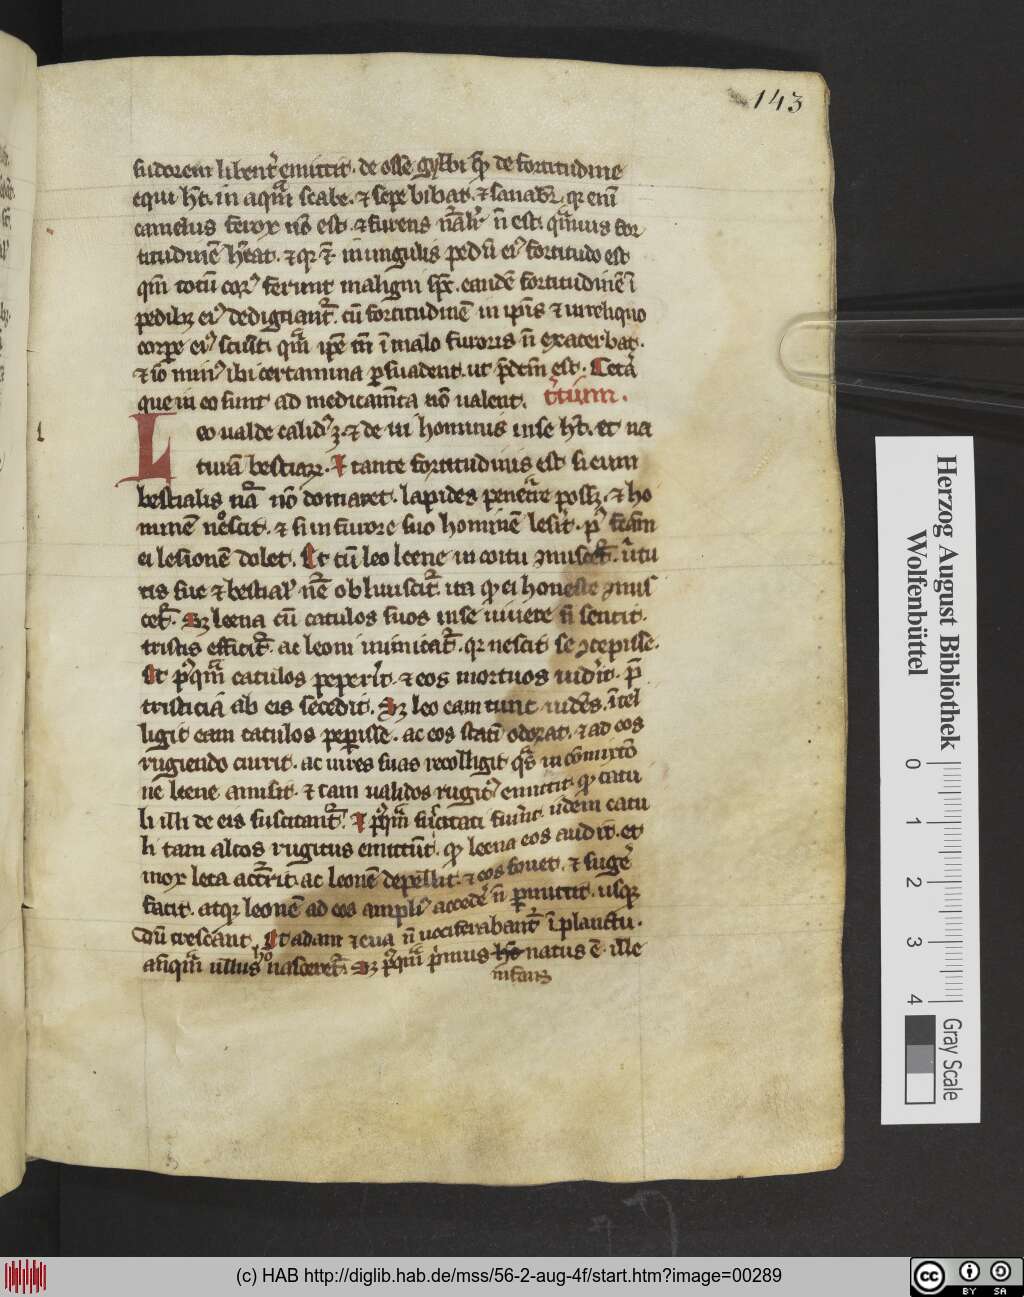 143
sudorem libent̾ emittit. de osse gylbi ꝙ de fortitudine
equi ht̄. in aqᷓm scabe. ⁊ sepe bibat. ⁊ sanabit̾. qr eni̅
camelus ferox nō est. ⁊ furens nāli̾ n̄ est. quāuis for
titudinē hēat. ⁊ qr in ungulis pedū ei᷒ fortitudo est
qm̄ totū corp᷒ ferunt maligni sp̄c. eandē fortitudinē i̅
pedibȝ ei᷒ dedignant̾. cū fortitudinē in ip̄is ⁊ in reliquo
corꝑe ei᷒ sciūt. qᷓ ip̄e tm̄ i̅ malo furoris n̄ exacerbat.
⁊ iō min᷒ ibi certamina ꝑsuadent. ut p̄dcm̄ est. Cetā
que in eo sunt ad medicam̄ta nō ualent. t̾tium.
Leo ualde calid᷒ ⁊ de ui hominis in se ht̄. et na
turā bestiaꝝ. ⁊ tante fortitudinis est si eum
bestialis nāˡ nō domaret. lapides penet̾re possȝ. ⁊ ho
minem nescit. ⁊ si in furore suo hominē leserit. p᷒ fcām
ei lesionē dolet. St cū leo leene in coitu ꝯmiscet̾. uir̾tu
tis sue ⁊ bestial᷒ nāe obliuiscit̾. ita ꝙ ei honeste ꝯmis
cet̾. Sȝ leena cū catulos suos in se uiuere n̄ sentit.
tristis efficit̾. ac leoni inimicat̾. qr nescit se ꝯcepisse.
St pꝰqᷓm catulos peperit. ⁊ eos mortuos uid̾it. p̄
tristiciā ab eis secedit. Sȝ leo eam tunc uidēs. i̅tel
ligit eam catulos peperisse. ac eos statī odorat. ⁊ ad eos
rugiendo currit. ac uires suas recolligit qᷓs in cōmixtō
nē leene amisit. ⁊ tam ualidos rugit᷒ emittit ꝙ catu
li illi de eis suscitant̾. ⁊ pꝰqᷓm suscitati fu̾int. idem catu
li tam altos rugitus emittūt. ꝙ leena eos audit. et
mox leta accurrit ac leonē depellit. ⁊ eos fouet. ⁊ suge̾
facit. atqꝫ leonē ad eos ampli᷒ accede̾ n̄ permittit. usqꝫ
dū crescant. St adam ⁊ eua n̄ uociferabant̾ i̅ planctu.
an̄qᷓm ullus hō nascer̄et̾. Sȝ pꝰqᷓm p̾mus natus ē. ille
infans
Herzog August Bibliothek
Wolfenbüttel
0 1 2 3 4
Gray Scale
(c) HAB http://diglib.hab.de/mss/56-2-aug-4f/start.htm?image=00289
cc BY SA